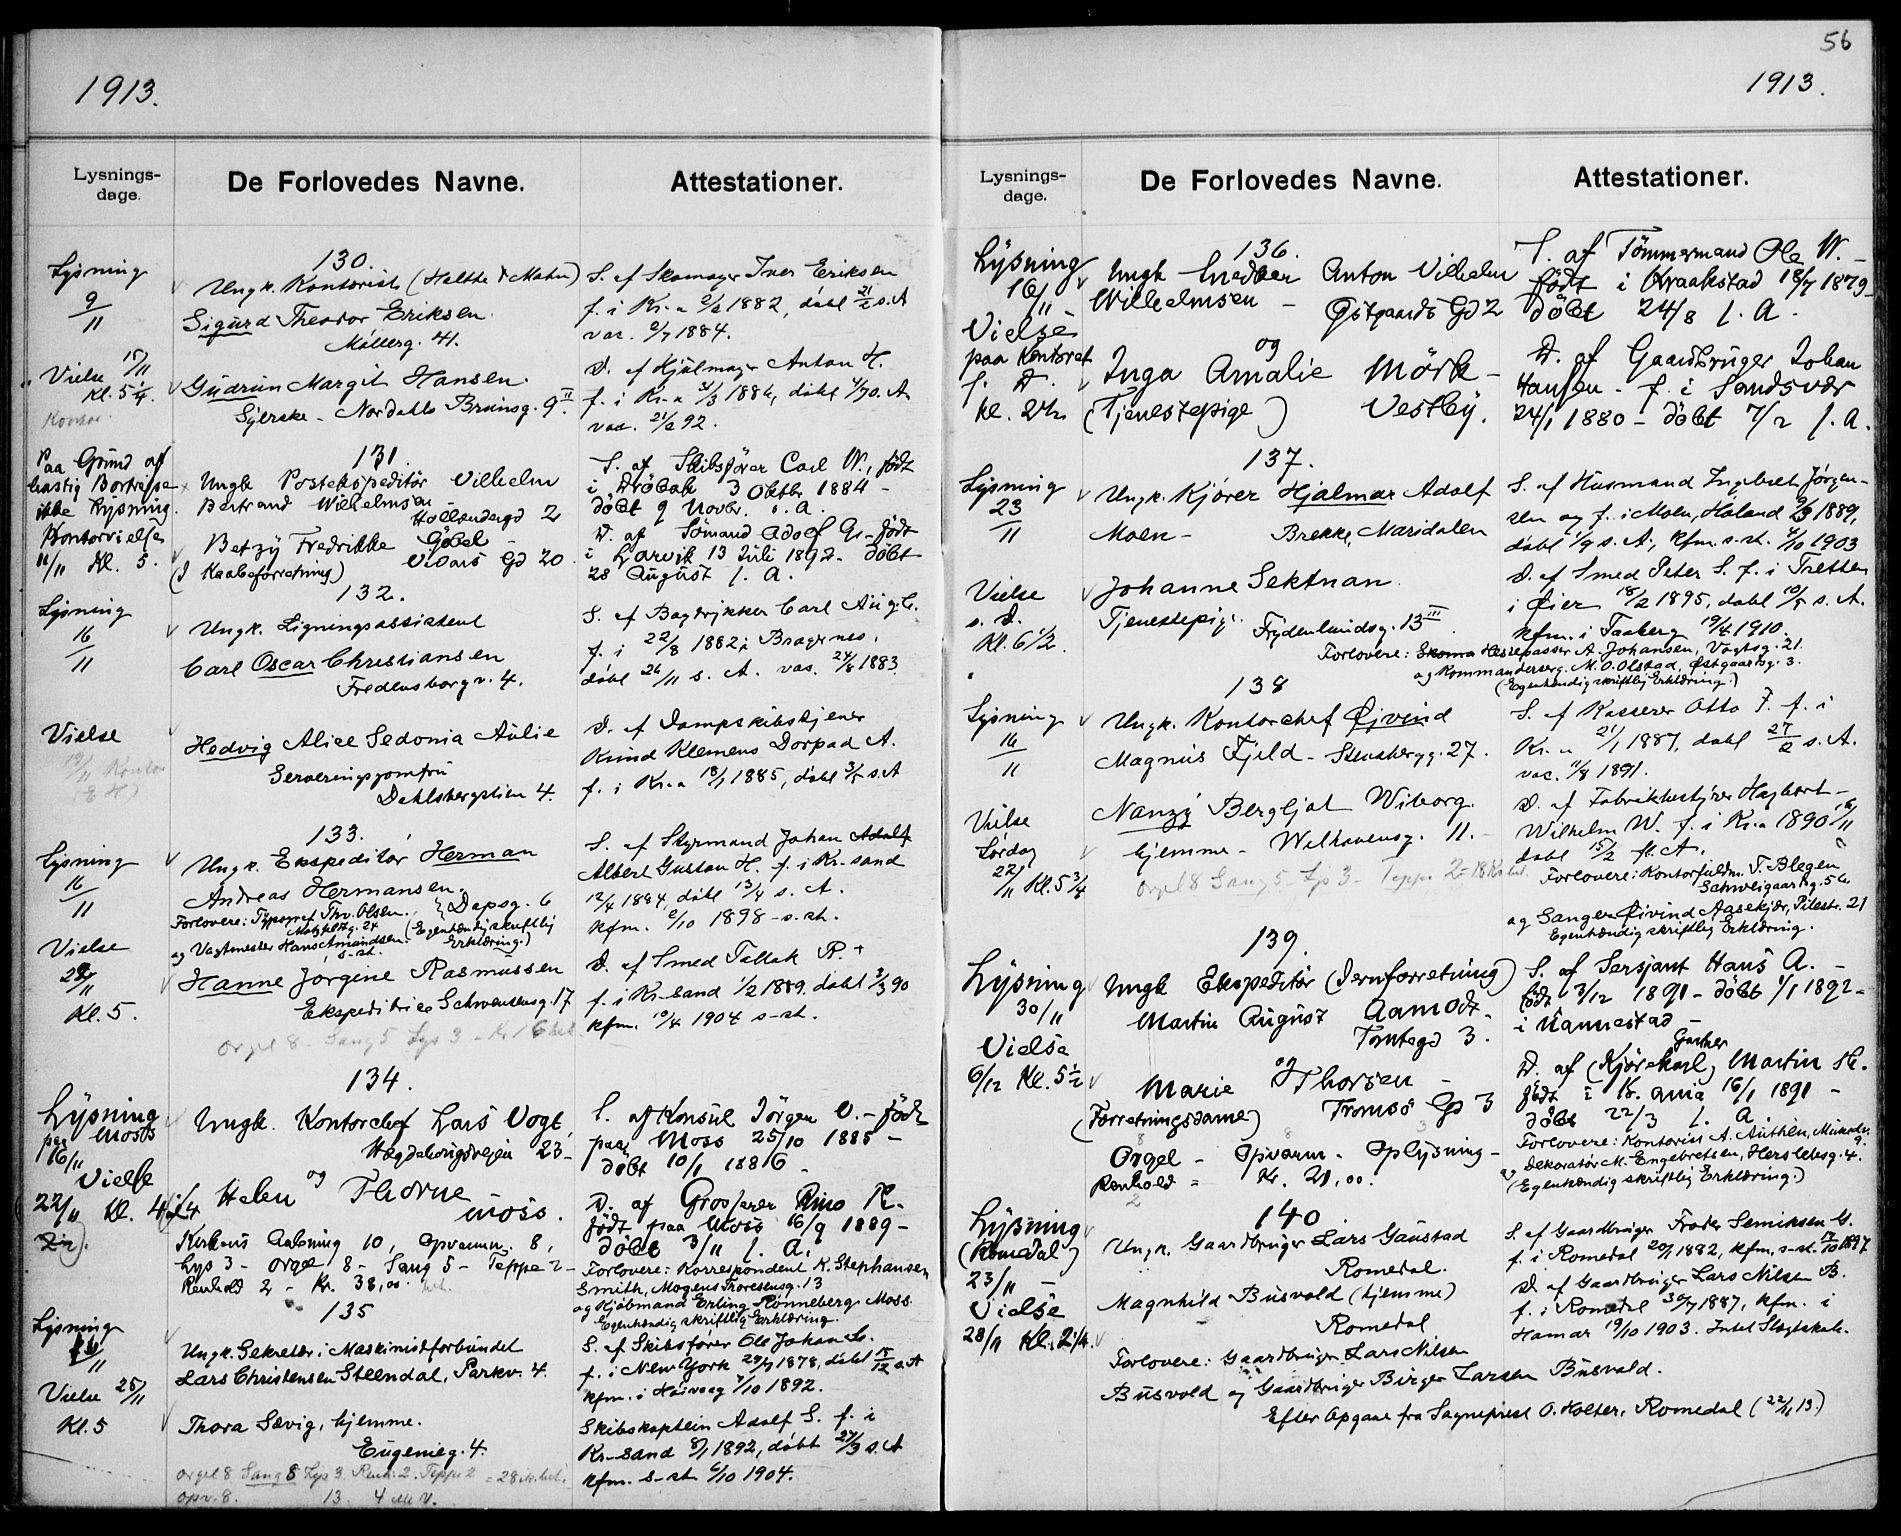 1913.
Lysnings-
dage.
De Forlovedes Navne.
Attestationer.
Lysning
9/11
Vielse 17/11
Kl. 5 1/4.
130.
Ungk. Kontorist
Sigurd Theodor Eriksen.
Möllerg. 41.
Gudrun Margit Hansen.
Syerske - Nordahl Brunsg. 9 II.
S. af Skomager Iver Eriksen
f. i Kr.a 1882, döbt 21/2 s. A
vac. 1884.
D. af Hjulmager Anton H.
f. i Kr.a 1886, döbt
vac. 92.
Paa Grund af
hastig Bortreise
ikke Lysning.
Kontorvielse
11/11 Kl. 5.
131.
Ungk Postekspeditör Vilhelm
Bertrand Wilhelmsen
2
Betzy Fredrikke
(I Kaabeforretning) Vidars Gd 20
S. af Skibsförer Carl W., födt
i Dröbak 3 Oktbr. 1884 -
döbt 9 Novbr. s. A.
D. af Sömand Adolf G. födt
i Larvik 13 Juli 1892 - döbt
28 August s. A.
Lysning
16/11
Vielse
19/11 Kontor
132.
Ungk. Ligningsassistent
Carl Oscar Christiansen
Fredensborgv. 4.
Hedvig Alice Sedonia Aulie
Serveringsjomfru
Dahlsbergstien 4.
S. af Bogtrykker Carl Aug. C.
f. i 22/8 1882 i Bragernes.
döbt 26/11 s. A. vac. 24/8 1883.
D. af Dampskibstjener
Knud Klemens Dorpad A.
f. i Kr.a 18/1 1885, döbt 3/5 s. A
Lysning
16/11
Vielse
/11
Kl. 5.
133.
Ungk. Ekspeditör Herman
Andreas Hermansen.
Dopsg. 6
Forlovere: Typograf Thv. Olsen,
24 (Egenhændig skriftlig
og Vagtmester Hans Amundsen. Erklæring.)
s-st.
Hanne Jörgine Rasmussen
Ekspeditrice Schwensensg. 17
Orgel 8 - Sang 5 Lys 3 - Kr 16 bet
S. af Styrmand Johan Adolf
Albert Gustav H. f. i Kr-sand
12/4 1884, döbt 13/4 s. A.
kfm. 2/10 1898 - s. st.
D. af Smed Tallak R. +
f. i Kr-sand 1/2 1889. döbt 3/3 90
kfm. 10/4 1904 s-st.
Lysning
paa Moss
16/11
Vielse
22/11 Kl. 4 1/4
134.
Ungk. Kontorchef Lars Vogt,
Hægdehougsveien 23 -
og
Helen Thorne
Moss.
Kirkens Aabning 10, Opvarmn. 8,
Lys 3 - Orgel 8 - Sang 5 - Teppe 2 -
Renhold 2 - Kr. 38,00
S. af Konsul Jörgen V. - födt
paa Moss 25/10 1885 -
döbt 10/1 1886 -
D. af Grosserer R.
födt paa Moss 16/9 1889 -
döbt 3/11 s. A.
Forlovere: Korrespondent K. Stephansen
Smith, Mogens Thoresensg. 13
og Kjöbmand Erling Rönneberg Moss.
Egenhændig skriftlig Erklæring.
Lysning
/11
Vielse 25/11
Kl. 5
135
Ungk. Sekretær i Maskinistforbundet
Lars Christensen Steendal, Parkv. 4.
Thora Sævig, hjemme.
Eugenieg. 4.
Orgel 8 Sang 5 Lys 3. Renh. 2. Teppe 2 = 28 kr. bet.
Opv. 8. 13. 4
S. af Skibsförer Ole Johan S.
f. i New York 1878, döbt 15/12 s. A
kfm. i 1/10 1892.
Skibskaptein Adolf S. f. i
Kr-sand 8/1 1892, döbt 27/3 s. A
kfm. s-st. 6/10 1904.
56
1913.
Lysnings-
dage.
De Forlovedes Navne.
Attestationer.
Lysning
16/11
Vielse
paa Kontoret
s. D.
Kl. 2
136.
Ungk Snedker Anton Vilhelm
Wilhelmsen - Östgaards Gd 2
og
Inga Amalie Mörk -
(Tjenestepige) Vestby.
S. af Tömmermand Ole W. -
födt i Kraakstad 18/7 1879 -
döbt 24/8 s. A.
D. af Gaardbruger Johan
Hansen - f. i Sandsvær
24/1 1880 - döbt 7/2 s. A.
Lysning
23/11
Vielse
s. D.
Kl. 6 1/2.
137.
Ungk. Kjörer Hjalmar Adolf
Moen - Brekke, Maridalen
Johanne Sektnan.
Tjenestepige.
Frydenlundsg. 13 III
S. af Husmand Ingebret Jörgen-
sen og f. i Moen, Höland 1889,
döbt 1/9 s. A., kfm. s-st. 4/10 1903
D. af Smed Peter S. f. i Tretten
i Öier 18/2 1895, döbt 10/5 s. A.
kfm. i Faaberg 19/4 1910.
Forlovere: Hestepasser A. Johansen, Vogtsg. 21
og Kommandersersg. M. O. Olstad, Östgaardsg. 3.
(Egenhændig skriftlig Erklæring.)
Lysning
16/11
Vielse
Lördag
22/11 Kl. 5 3/4
138
Ungk. Kontorchef Øjvind
Magnus Fjeld - Stensbergg. 27.
Nanzy Bergljot Wiborg.
hjemme - Welhavensg. 11. -
Orgel 8 Sang 5 - Lys 3 - Teppe 2 - 18 Kr. bet.
S. af Kasserer Otto F. f. i
Kr.a 21/1 1887, döbt 27/2 s. A.
vac. 11/8 1891.
D. af Fabrikbestyrer Hagbart -
Wilhelm W. f. i Kr.a 1890 16/11
döbt 15/2 fl. A.
Forlovere: Kontorfuldm. T. Blegen
Schweigaardsg. 56
og Sanger Øivind Aasekjær, Pilestr. 21
Egenhændig skriftlig Erklæring.
Lysning
30/11
Vielse
6/12 Kl. 5 1/2
139.
Ungk Ekspeditör (Jernforretning)
Martin August Aamodt.
Tomtegd 3.
og
Marie Thorsen -
(Forretningsdame) Tromsö Gd 3
Orgel - Opvarm. - Oplysning -
Renhold = Kr. 21,00.
S. af Sersjant Hans A. -
födt 3/12 1891 - döbt 1/1 1892 -
i Nannestad -
D. af (Kjörekarl) Martin
födt i Kr.ania 16/1 1891 -
döbt 22/3 s. A.
Forlovere: Kontorist A. Authen,
og Dekoratör M. Engebretsen, Herslebsg. 4.
(Egenhændig skriftlig Erklæring.)
Lysning
(Romedal)
23/11 -
Vielse
28/11 Kl. 2 1/4.
140.
Ungk. Gaardbruger Lars Gaustad
Romedal.
Magnhild Busvold (hjemme)
Romedal
Forlovere: Gaardbruger Lars Nilsen
Busvold og Gaardbruger Birger Larsen Busvold.
Efter Opgave fra Sogneprest O. Holter, Romedal (22/11 13.)
S. af Gaardbruger Frader Semiksen G.
f. i Romedal 20/1 1882, kfm. s-st. 17/10 1897
D. af Gaardbruger Lars Nilsen B.
f. i Romedal 30/7 1887, kfm. i
Hamar 19/10 1903. Intet Slegtskab.